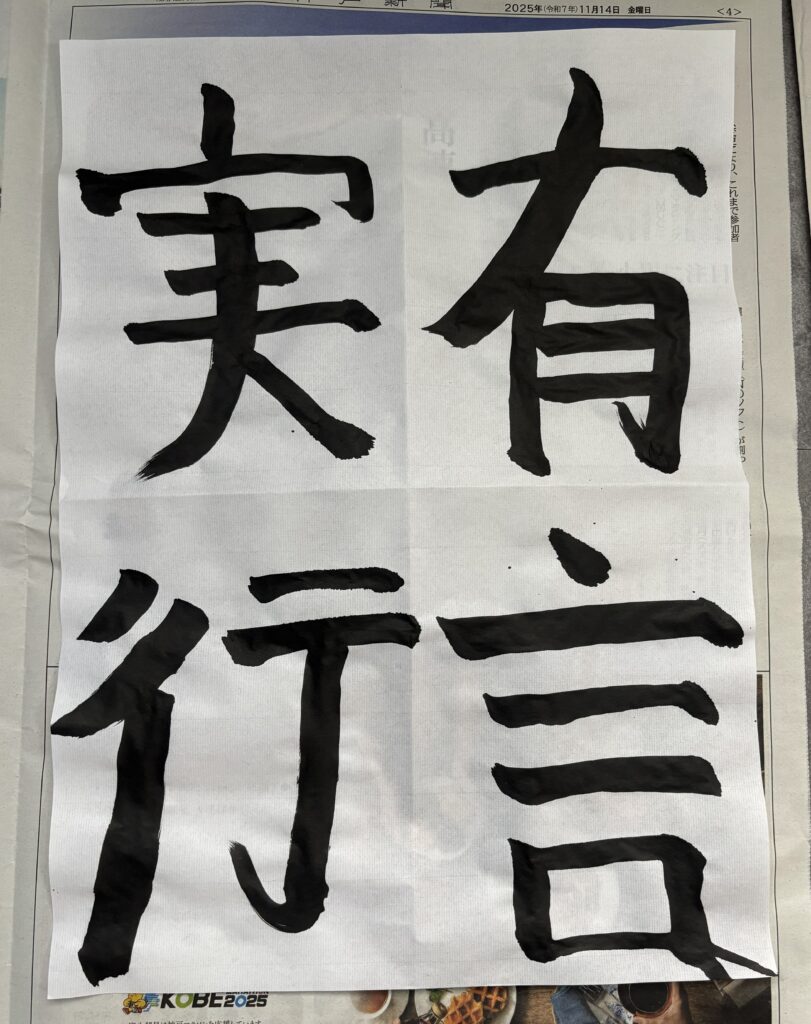 2025年(令和7年)11月14日 金曜日
<4>
有言
実行
KOBE
2025